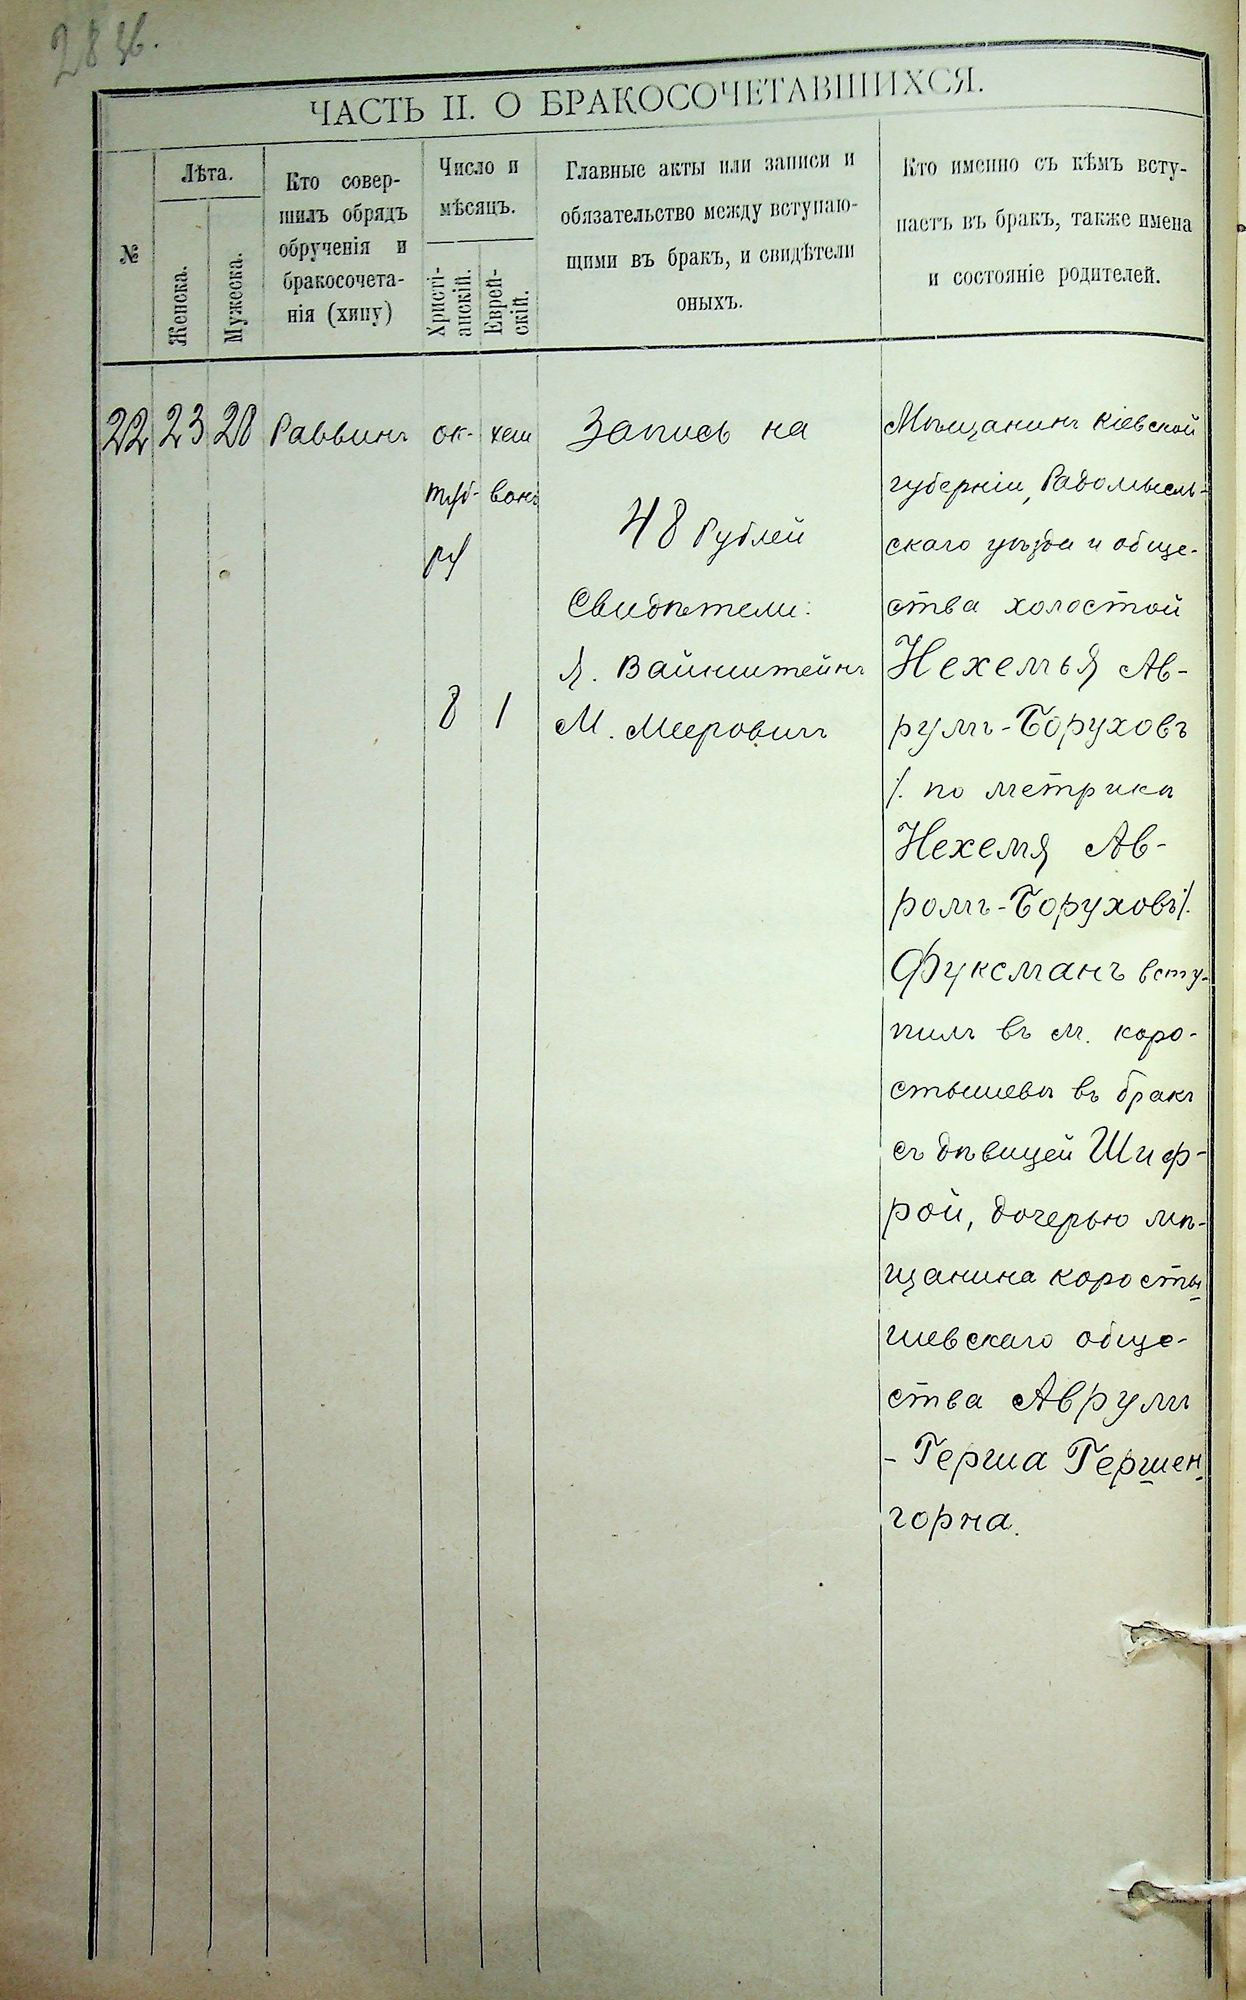 28 зв.
ЧАСТЬ II. О БРАКОСОЧЕТАВШИХСЯ.
№
Лѣта.
Женска.
Мужеска.
Кто совер-
шилъ обрядъ
обрученія и
бракосочета-
нія (хипу)
Число и
мѣсяцъ.
Христі-
анскій.
Еврей-
скій.
Главные акты или записи и
обязательство между вступаю-
щими въ бракъ, и свидѣтели
оныхъ.
Кто именно съ кѣмъ всту-
паетъ въ бракъ, также имена
и состояніе родителей.
22
23
28
Раввинъ
ок-
тяб-
ря
8
хеш
ванъ
1
Запись на
48 рублей
Свидѣтели:
Я. Вайнштейнъ
М. Мееровичъ
Мѣщанинъ Кіевской
губерніи, Радомысль-
скаго уѣзда и обще-
ства холостой
Нехемья Ав-
румъ-Боруховъ
/. по метрикѣ
Нехемя Ав-
ромъ-Боруховъ/.
Фуксманъ всту-
пилъ въ м. Коро-
стышевѣ въ бракъ
съ дѣвицей Шиф-
рой, дочерью мѣ-
щанина Коросты
шевскаго обще-
ства Аврумъ
- Герша Гершен
горна.